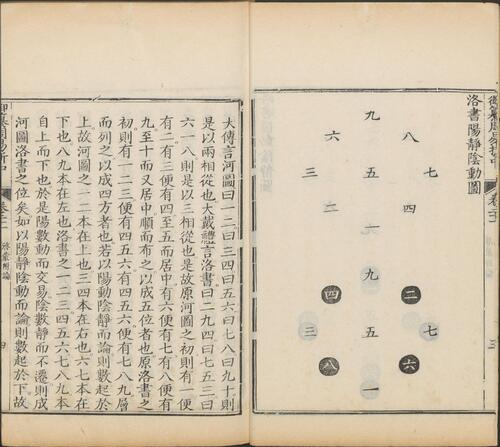 洛書陽靜陰動圖
九
六 八
三 五 七
二 四
一
九
四 二
三 五 七
八 六
一
三
大傳言河圖曰一二曰三四曰五六曰七八曰九十則
是以兩相從也大戴禮言洛書曰二九四曰七五三曰
六一八則是以三相從也是故原河圖之初則有一便
有二有三便有四至五而居中有六便有七有八便有
九至十而又居中順而布之以成五位者也原洛書之
初則有一二三便有四五六有四五六便有七八九層
而列之以成四方者也若以陽動陰靜而論則數起於
上故河圖之一二本在上也三四本在右也六七本在
下也八九本在左也洛書之一二三四五六七八九本
自上而下也於是陽數動而交易陰數靜而不遷則成
河圖洛書之位矣如以陽靜陰動而論則數起於下故
御纂周易折中
啓蒙附論
四